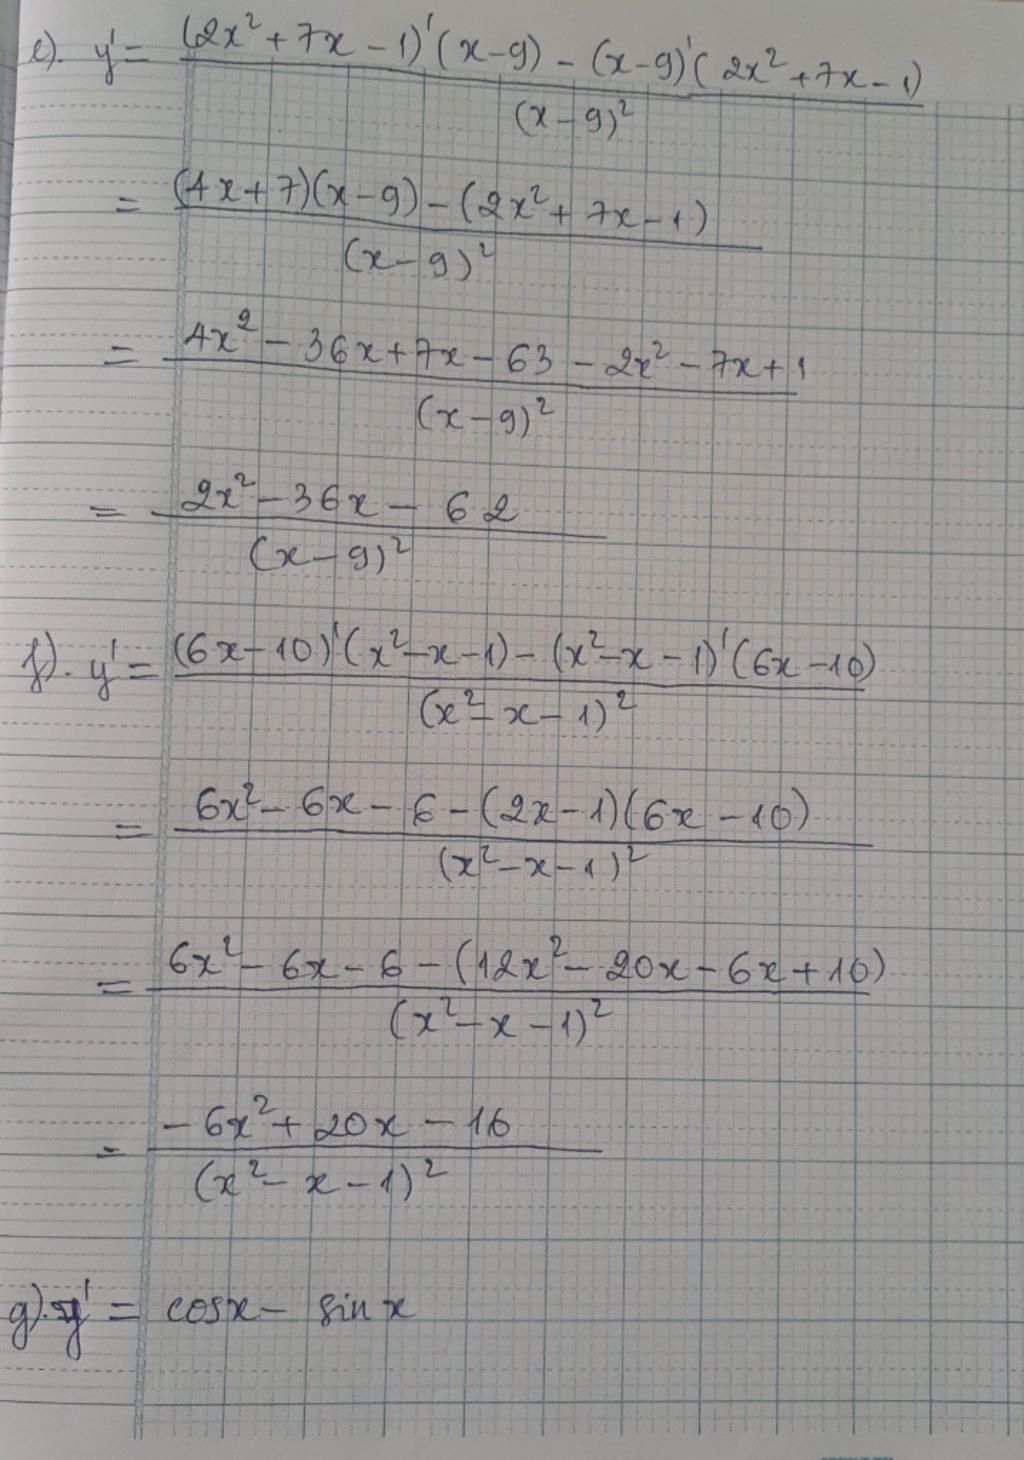 e). y' = (2x² + 7x - 1)'(x - 9) - (x - 9)'(2x² + 7x - 1)
(x - 9)²
= (4x + 7)(x - 9) - (2x² + 7x - 1)
(x - 9)²
= 4x² - 36x + 7x - 63 - 2x² - 7x + 1
(x - 9)²
= 2x² - 36x - 62
(x - 9)²
f). y' = (6x - 10)'(x² - x - 1) - (x² - x - 1)'(6x - 10)
(x² - x - 1)²
= 6x² - 6x - 6 - (2x - 1)(6x - 10)
(x² - x - 1)²
= 6x² - 6x - 6 - (12x² - 20x - 6x + 10)
(x² - x - 1)²
= - 6x² + 20x - 16
(x² - x - 1)²
g). y' = cosx - sin x